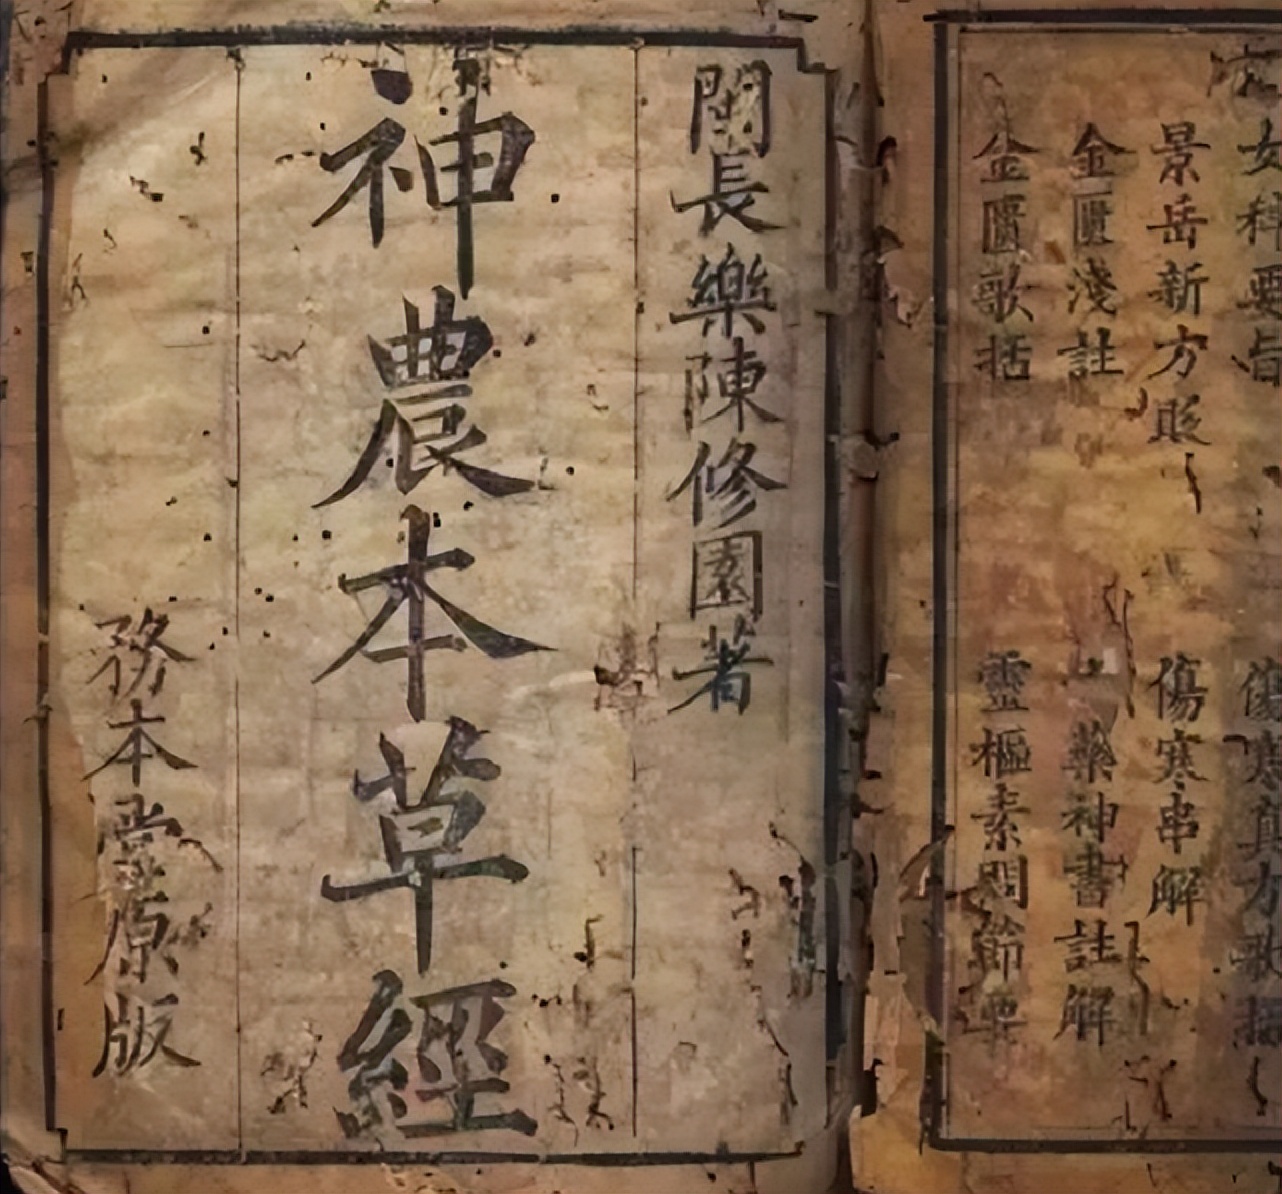 女科要旨
傷寒真方歌括
景岳新方
傷寒串解
金匱淺註
藥神書註解
金匱歌括
靈樞素問節要
閩長樂陳修園著
神農本草經
務本堂原版